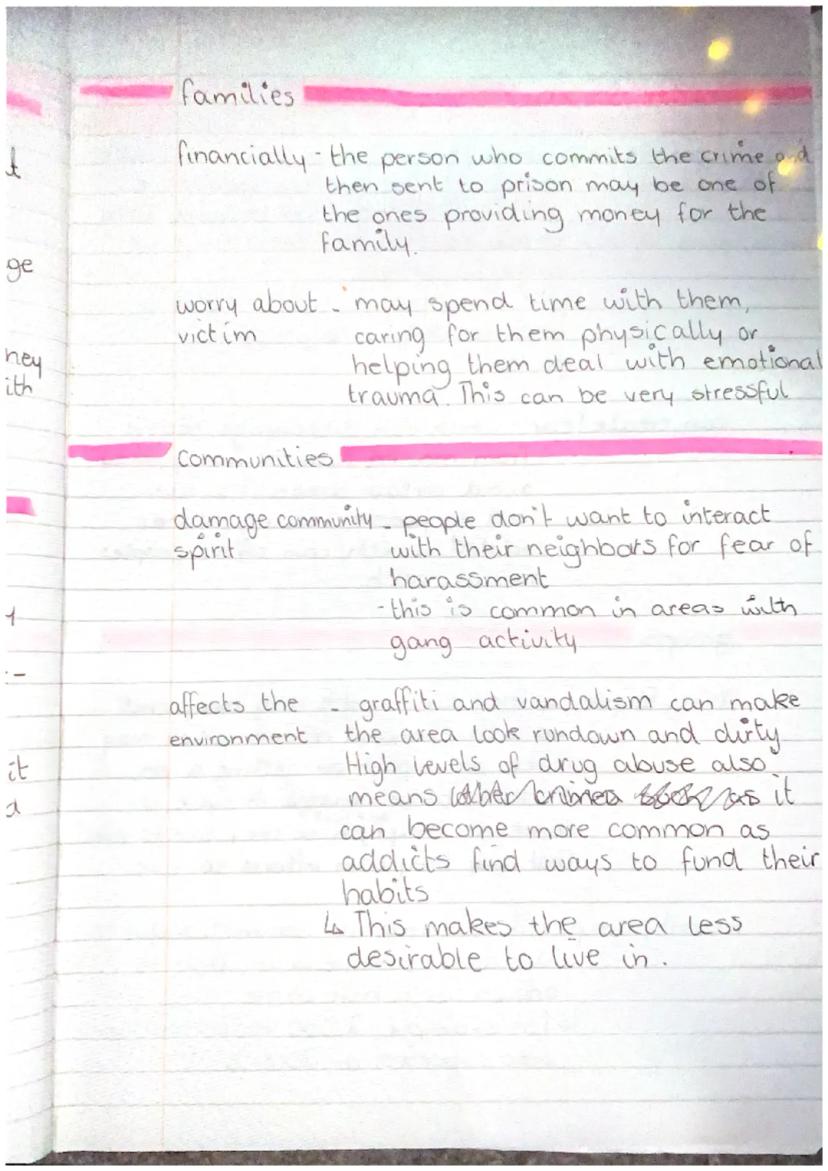 families
financially - the person who commits the crime and
then sent to prison may be one of
the ones providing money for the
family.
worry about - may spend time with them,
victim caring for them physically or
helping them deal with emotional
trauma. This can be very stressful
communities
damage community - people don't want to interact
spirit with their neighbors for fear of
harassment
- this is common in areas with
gang activity
affects the - graffiti and vandalism can make
environment the area look rundown and dirty
High levels of drug abuse also
means it
can become more common as
addicts find ways to fund their
habits
↳ This makes the area less
desirable to live in.
t
ge
ney
ith
it
a